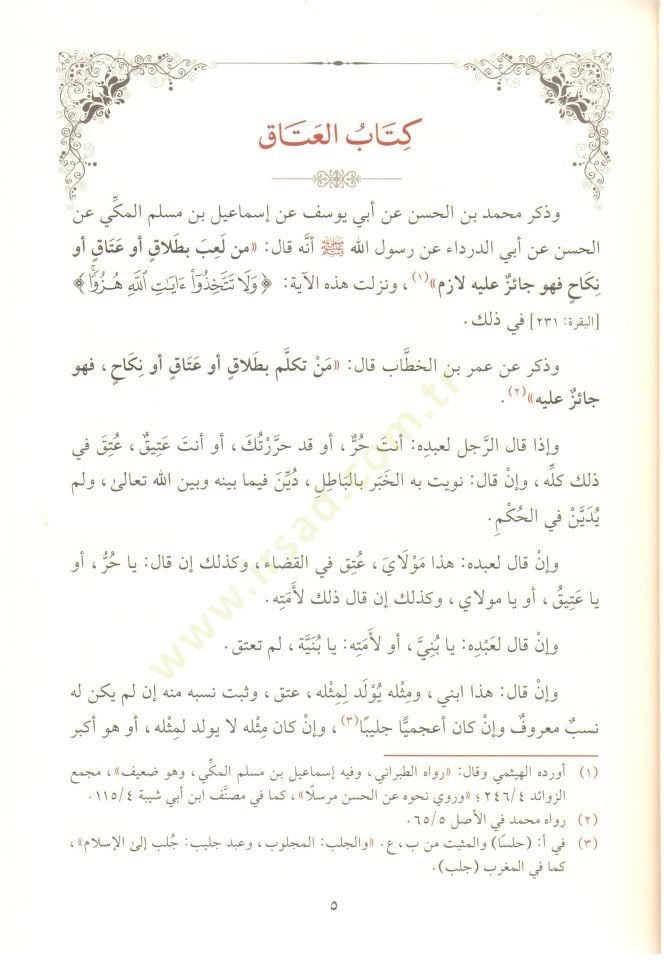 كِتَابُ العَتَاق
وذكر محمد بن الحسن عن أبي يوسف عن إسماعيل بن مسلم المكِّي عن
الحسن عن أبي الدرداء عن رسول الله ﷺ أنَّه قال: «من لَعِبَ بطَلاقٍ أو عَتَاقٍ أو
نِكَاحٍ فهو جائزٌ عليه لازم»(١)، ونزلت هذه الآية: ﴿وَلَا تَتَّخِذُوٓا۟ ءَايَٰتِ ٱللَّهِ هُزُوًا﴾
[البقرة: ٢٣١] في ذلك.
وذكر عن عمر بن الخطَّاب قال: «مَنْ تكلَّم بطَلاقٍ أو عَتَاقٍ أو نِكَاحٍ، فهو
جائزٌ عليه»(٢).
وإذا قال الرَّجل لعبدِه: أنتَ حُرٌّ، أو قد حرَّرْتُكَ، أو أنتَ عَتِيقٌ، عُتِقَ في
ذلك كلِّه، وإنْ قال: نويت به الخَبَر بالبَاطِلِ، دُيِّنَ فيما بينه وبين الله تعالىٰ، ولم
يُدَيَّنْ في الحُكْمِ.
وإنْ قال لعبده: هذا مَوْلَايَ، عُتِق في القضاء، وكذلك إن قال: يا حُرُّ، أو
يا عَتِيقُ، أو يا مولاي، وكذلك إن قال ذلك لأمَتِه.
وإنْ قال لعَبْدِه: يا بُنِيَّ، أو لأَمَتِه: يا بُنَيَّة، لم تعتق.
وإنْ قال: هذا ابني، ومِثْله يُوْلَد لِمِثْله، عتق، وثبت نسبه منه إن لم يكن له
نسبٌ معروفٌ وإنْ كان أعجميًّا جليبًا(٣)، وإنْ كان مِثْله لا يولد لمِثْله، أو هو أكبر
(١) أورده الهيثمي وقال: «رواه الطبراني، وفيه إسماعيل بن مسلم المكِّي، وهو ضعيف»، مجمع
الزوائد ٢٤٦/٤؛ «وروي نحوه عن الحسن مرسلًا»، كما في مصنَّف ابن أبي شيبة ١١٥/٤.
(٢) رواه محمد في الأصل ٦٥/٥.
(٣) في أ: (حلسًا) والمثبت من ب، ع. «والجلب: المجلوب، وعبد جليب: جُلب إلىٰ الإسلام»،
كما في المغرب (جلب).
٥
www.irsad.com.tr